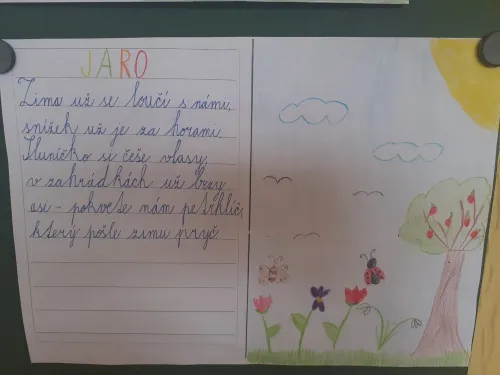 JARO
Zima už se loučí s námi,
snížek už je za horami.
Sluníčko si češe vlasy,
v zahrádkách už brzy
asi - pokvete nám petrklíč,
který pošle zimu pryč.